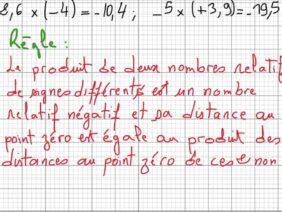 2,6 x (-4) = -10,4 ; -5 x (+3,9) = -19,5
Règle :
Le produit de deux nombres relatif
de signes différents est un nombre
relatif négatif et sa distance au
point zéro est égale au produit des
distances au point zéro de ces non